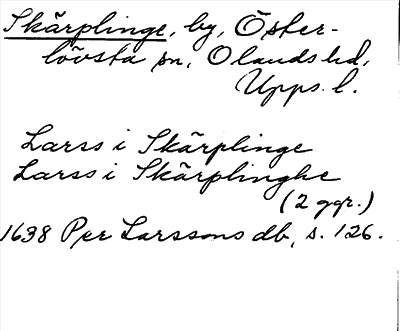 Skärplinge, by, Öster-
lövsta sn, Olands hd,
Upps. l.
Larss i Skärplinge
Larss i Skärplinghe
(2 ggr.)
1638 Per Larssons db, s. 126.